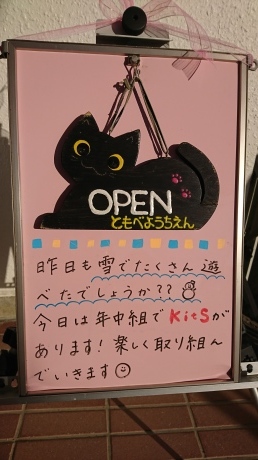 OPEN
ともべようちえん
昨日も雪でたくさん遊
べたでしょうか??
今日は年中組でKitSが
あります!楽しく取り組ん
でいきます